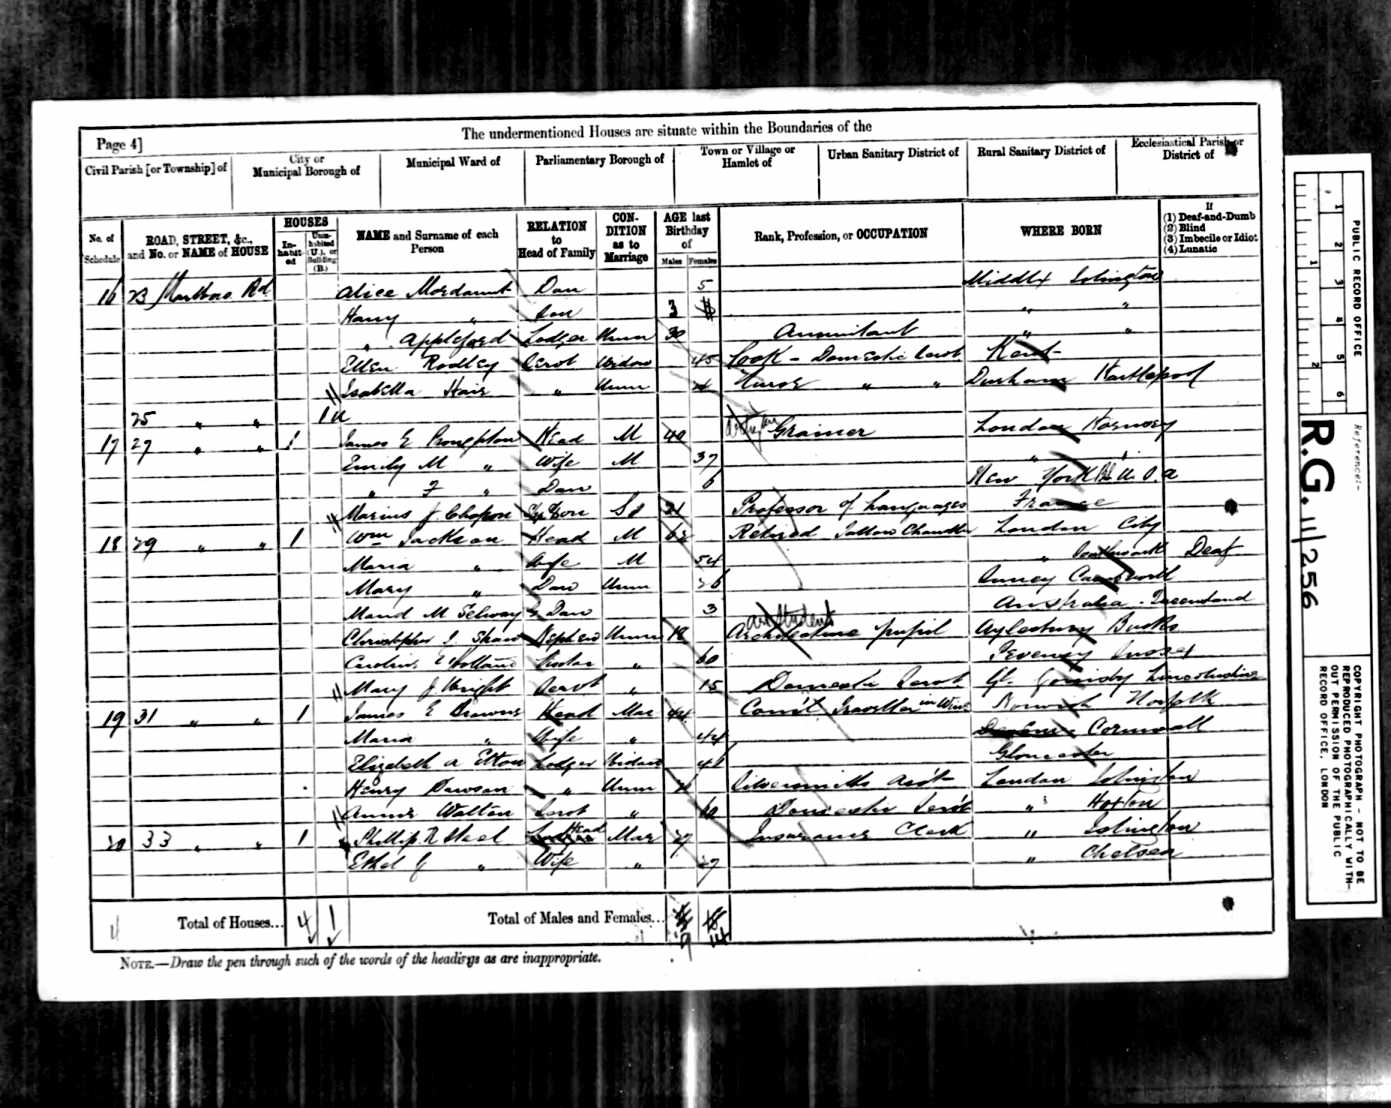 Page 4]
The undermentioned Houses are situate within the Boundaries of the
Civil Parish [or Township] of
City or Municipal Borough of
Municipal Ward of
Parliamentary Borough of
Town or Village or Hamlet of
Urban Sanitary District of
Rural Sanitary District of
Ecclesiastical Parish or District of
No. of Schedule
ROAD, STREET, &c., and No. or NAME of HOUSE
HOUSES
In-habit-ed
Unin-habited (U.), or Building (B.)
NAME and Surname of each Person
RELATION to Head of Family
CON-DITION as to Marriage
AGE last Birthday of
Males
Females
Rank, Profession, or OCCUPATION
WHERE BORN
If
(1) Deaf-and-Dumb
(2) Blind
(3) Imbecile or Idiot
(4) Lunatic
16 23 Marlboro Rd Alice Mordaunt Daur 5 Middlx Islington
Harry " Son 3 " "
" Appleford Lodger Unm 30 Accountant " "
Ellen Rodley Servt Widow 45 Cook - Domestic Servt Kent
Isabella Hair " Unm Nurse " " Durham Hartlepool
25 " " 1 U
17 27 " " 1 James E Head M 40 Grainer London
Emily M " Wife M 37 " "
" F " Daur 6 New York U.S.A
Marius J Chapon Son 21 Professor of Languages France
18 29 " " 1 Wm Jackson Head M 62 Retired Tallow Chandler London City
Maria " Wife M 54 " Southwark Deaf
Mary " Daur Unm 26 Surrey Camberwell
Maud M Selway G Daur 3 Australia - Queensland
Christopher J Shaw Nephew Unm 18 Architecture pupil Art Student Aylesbury Bucks
Caroline E " 60 Pevensey Sussex
Mary J Wright Servt " 15 Domestic Servt Gt Grimsby Lincolnshire
19 31 " " 1 James E Browne Head Mar 44 Com'l Traveller in Wine Norwich Norfolk
Maria " Wife " 44 Cornwall
Elizabeth A Lodger Widow Gloucester
Henry Dawson " Unm Silversmiths Ass't London Islington
Annie Walton Servt " 19 Domestic Serv't " Hoxton
20 33 " " 1 Phillip R Steel Head Mar 27 Insurance Clerk " Islington
Ethel G " Wife " 27 " Chelsea
4 Total of Houses... 4 1 Total of Males and Females... 9 14
NOTE.—Draw the pen through such of the words of the headings as are inappropriate.
PUBLIC RECORD OFFICE
1 2 3 4 5 6
1 2
Reference:-
R.G. 11/256
COPYRIGHT PHOTOGRAPH - NOT TO BE REPRODUCED PHOTOGRAPHICALLY WITH-OUT PERMISSION OF THE PUBLIC RECORD OFFICE, LONDON